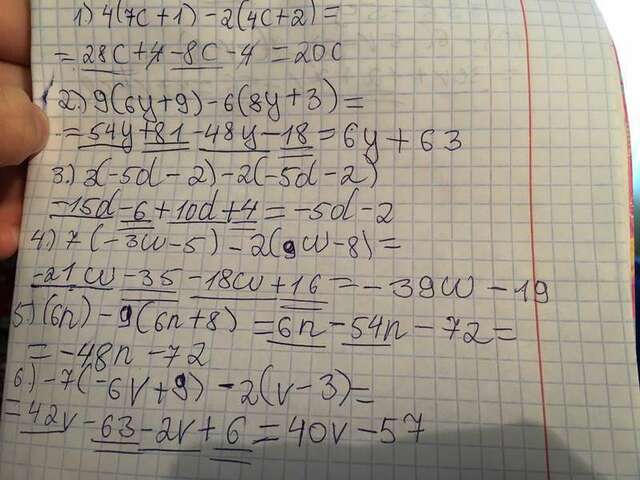 1) 4(7c+1)-2(4c+2)=
=28c+4-8c-4=20c
2.) 9(6y+9)-6(8y+3)=
=54y+81-48y-18=6y+63
3.) 3(-5d-2)-2(-5d-2)
-15d-6+10d+4=-5d-2
4) 7(-3w-5)-2(9w-8)=
-21w-35-18w+16=-39w-19
5) (6n)-9(6n+8)=6n-54n-72=
=-48n-72
6) -7(-6v+9)-2(v-3)=
=42v-63-2v+6=40v-57